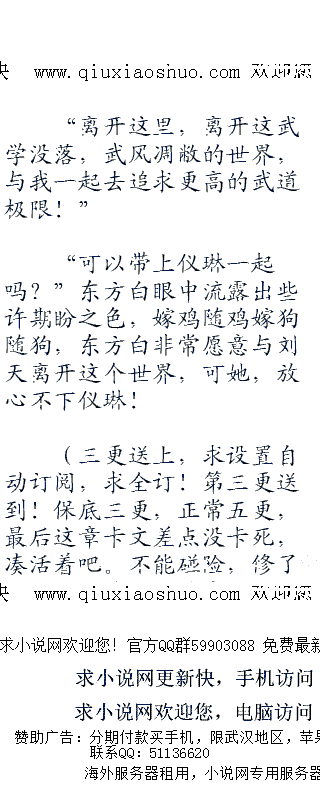 快 www.qiuxiaoshuo.com 欢迎您
“离开这里，离开这武
学没落，武风凋敝的世界，
与我一起去追求更高的武道
极限！”
“可以带上仪琳一起
吗？”东方白眼中流露出些
许期盼之色，嫁鸡随鸡嫁狗
随狗，东方白非常愿意与刘
天离开这个世界，可她，放
心不下仪琳！
（三更送上，求设置自
动订阅，求全订！第三更送
到！保底三更，正常五更，
最后这章卡文差点没卡死，
凑活着吧。不能碰险，修了
快 www.qiuxiaoshuo.com 欢迎您
求小说网欢迎您！官方QQ群59903088 免费最新
求小说网更新快，手机访问
求小说网欢迎您，电脑访问
赞助广告：分期付款买手机，限武汉地区，苹果
联系QQ：51136620
海外服务器租用，小说网专用服务器